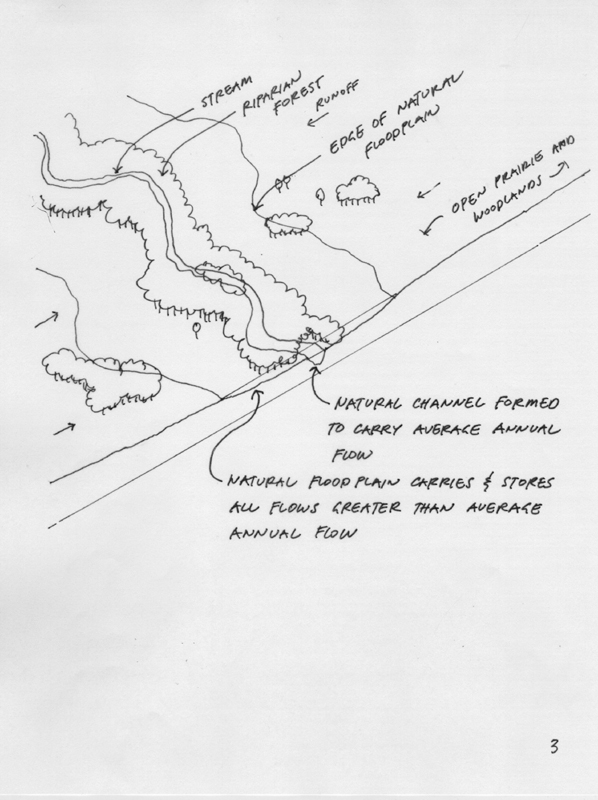 STREAM
RIPARIAN
FOREST
RUNOFF
EDGE OF NATURAL
FLOODPLAIN
OPEN PRAIRIE AND
WOODLANDS
NATURAL CHANNEL FORMED
TO CARRY AVERAGE ANNUAL
FLOW
NATURAL FLOODPLAIN CARRIES & STORES
ALL FLOWS GREATER THAN AVERAGE
ANNUAL FLOW
3